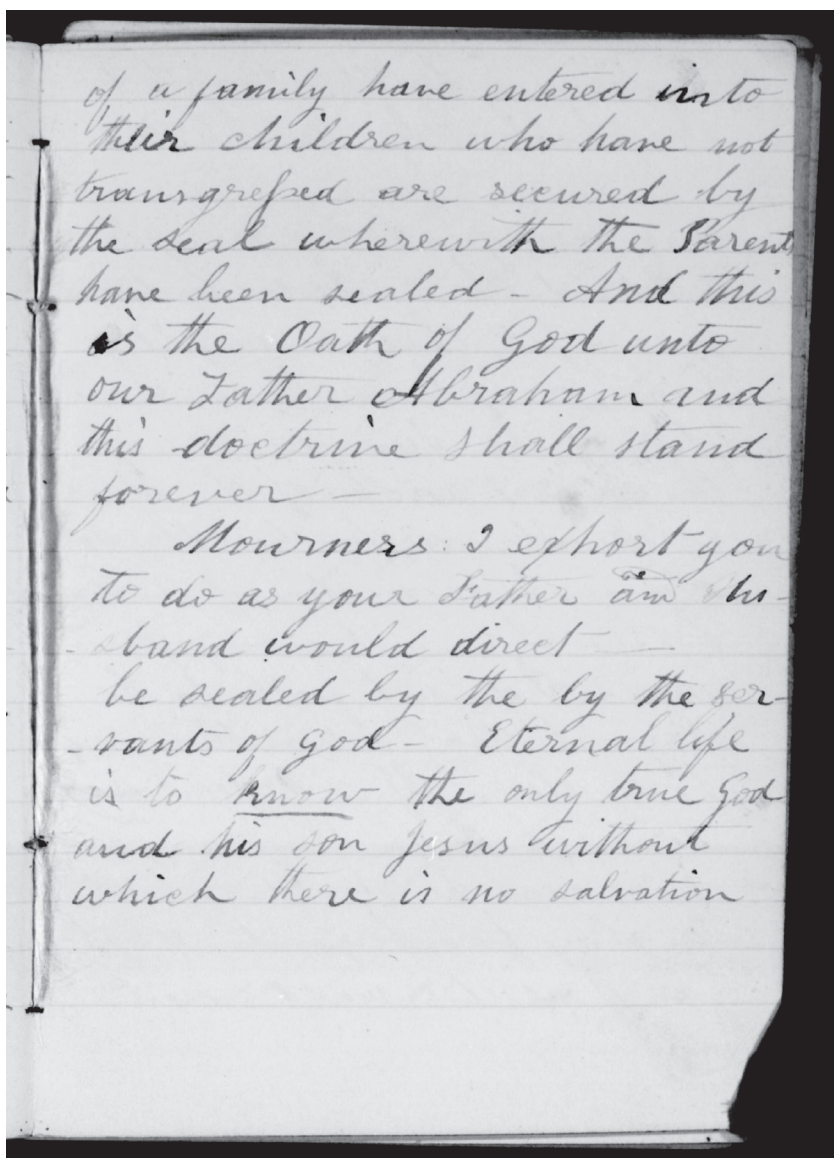 of a family have entered into
their children who have not
transgressed are secured by
the seal wherewith the Parents
have been sealed - And this
is the Oath of God unto
our Father Abraham and
this doctrine shall stand
forever -
Mourners: I exhort you
to do as your Father and Hu-
-sband would direct -
be sealed by the by the ser-
-vants of God - Eternal life
is to know the only true God
and his son Jesus without
which there is no salvation